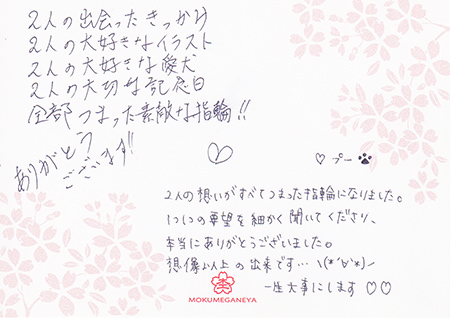 2人の出会ったきっかけ
2人の大好きなイラスト
2人の大好きな愛犬
2人の大切な記念日
全部つまった素敵な指輪!!
ありがとう
ございます!!
♡ プー
2人の想いがすべてつまった指輪になりました。
1つ1つの要望を細かく聞いてくださり、
本当にありがとうございました。
想像以上の出来です… \(*´∀`*)ノ
一生大事にします ♡♡
MOKUMEGANEYA